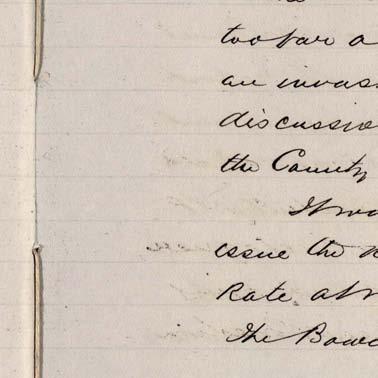 too far a
an invas
discussio
the County
It wa
issue the
Rate at
The Boa